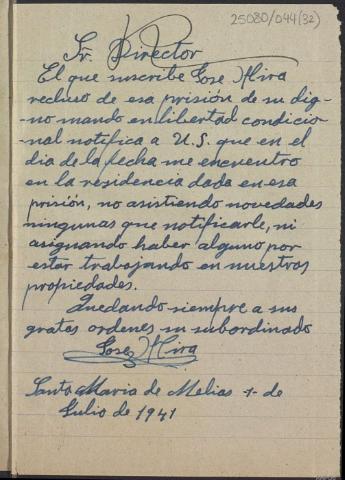 25080/044(32)
Sr. Director
El que suscribe Jose Mira
recluso de esa prisión de su dig-
no mando en libertad condicio-
nal notifica a U.S. que en el
dia de la fecha me encuentro
en la residencia dada en esa
prisión, no asistiendo novedades
ningunas que notificarle, ni
asignando haber alguno por
estar trabajando en nuestras
propiedades.
Quedando siempre a sus
gratas ordenes su subordinado
Jose Mira
Santa Maria de Melias 1- de
Julio de 1941